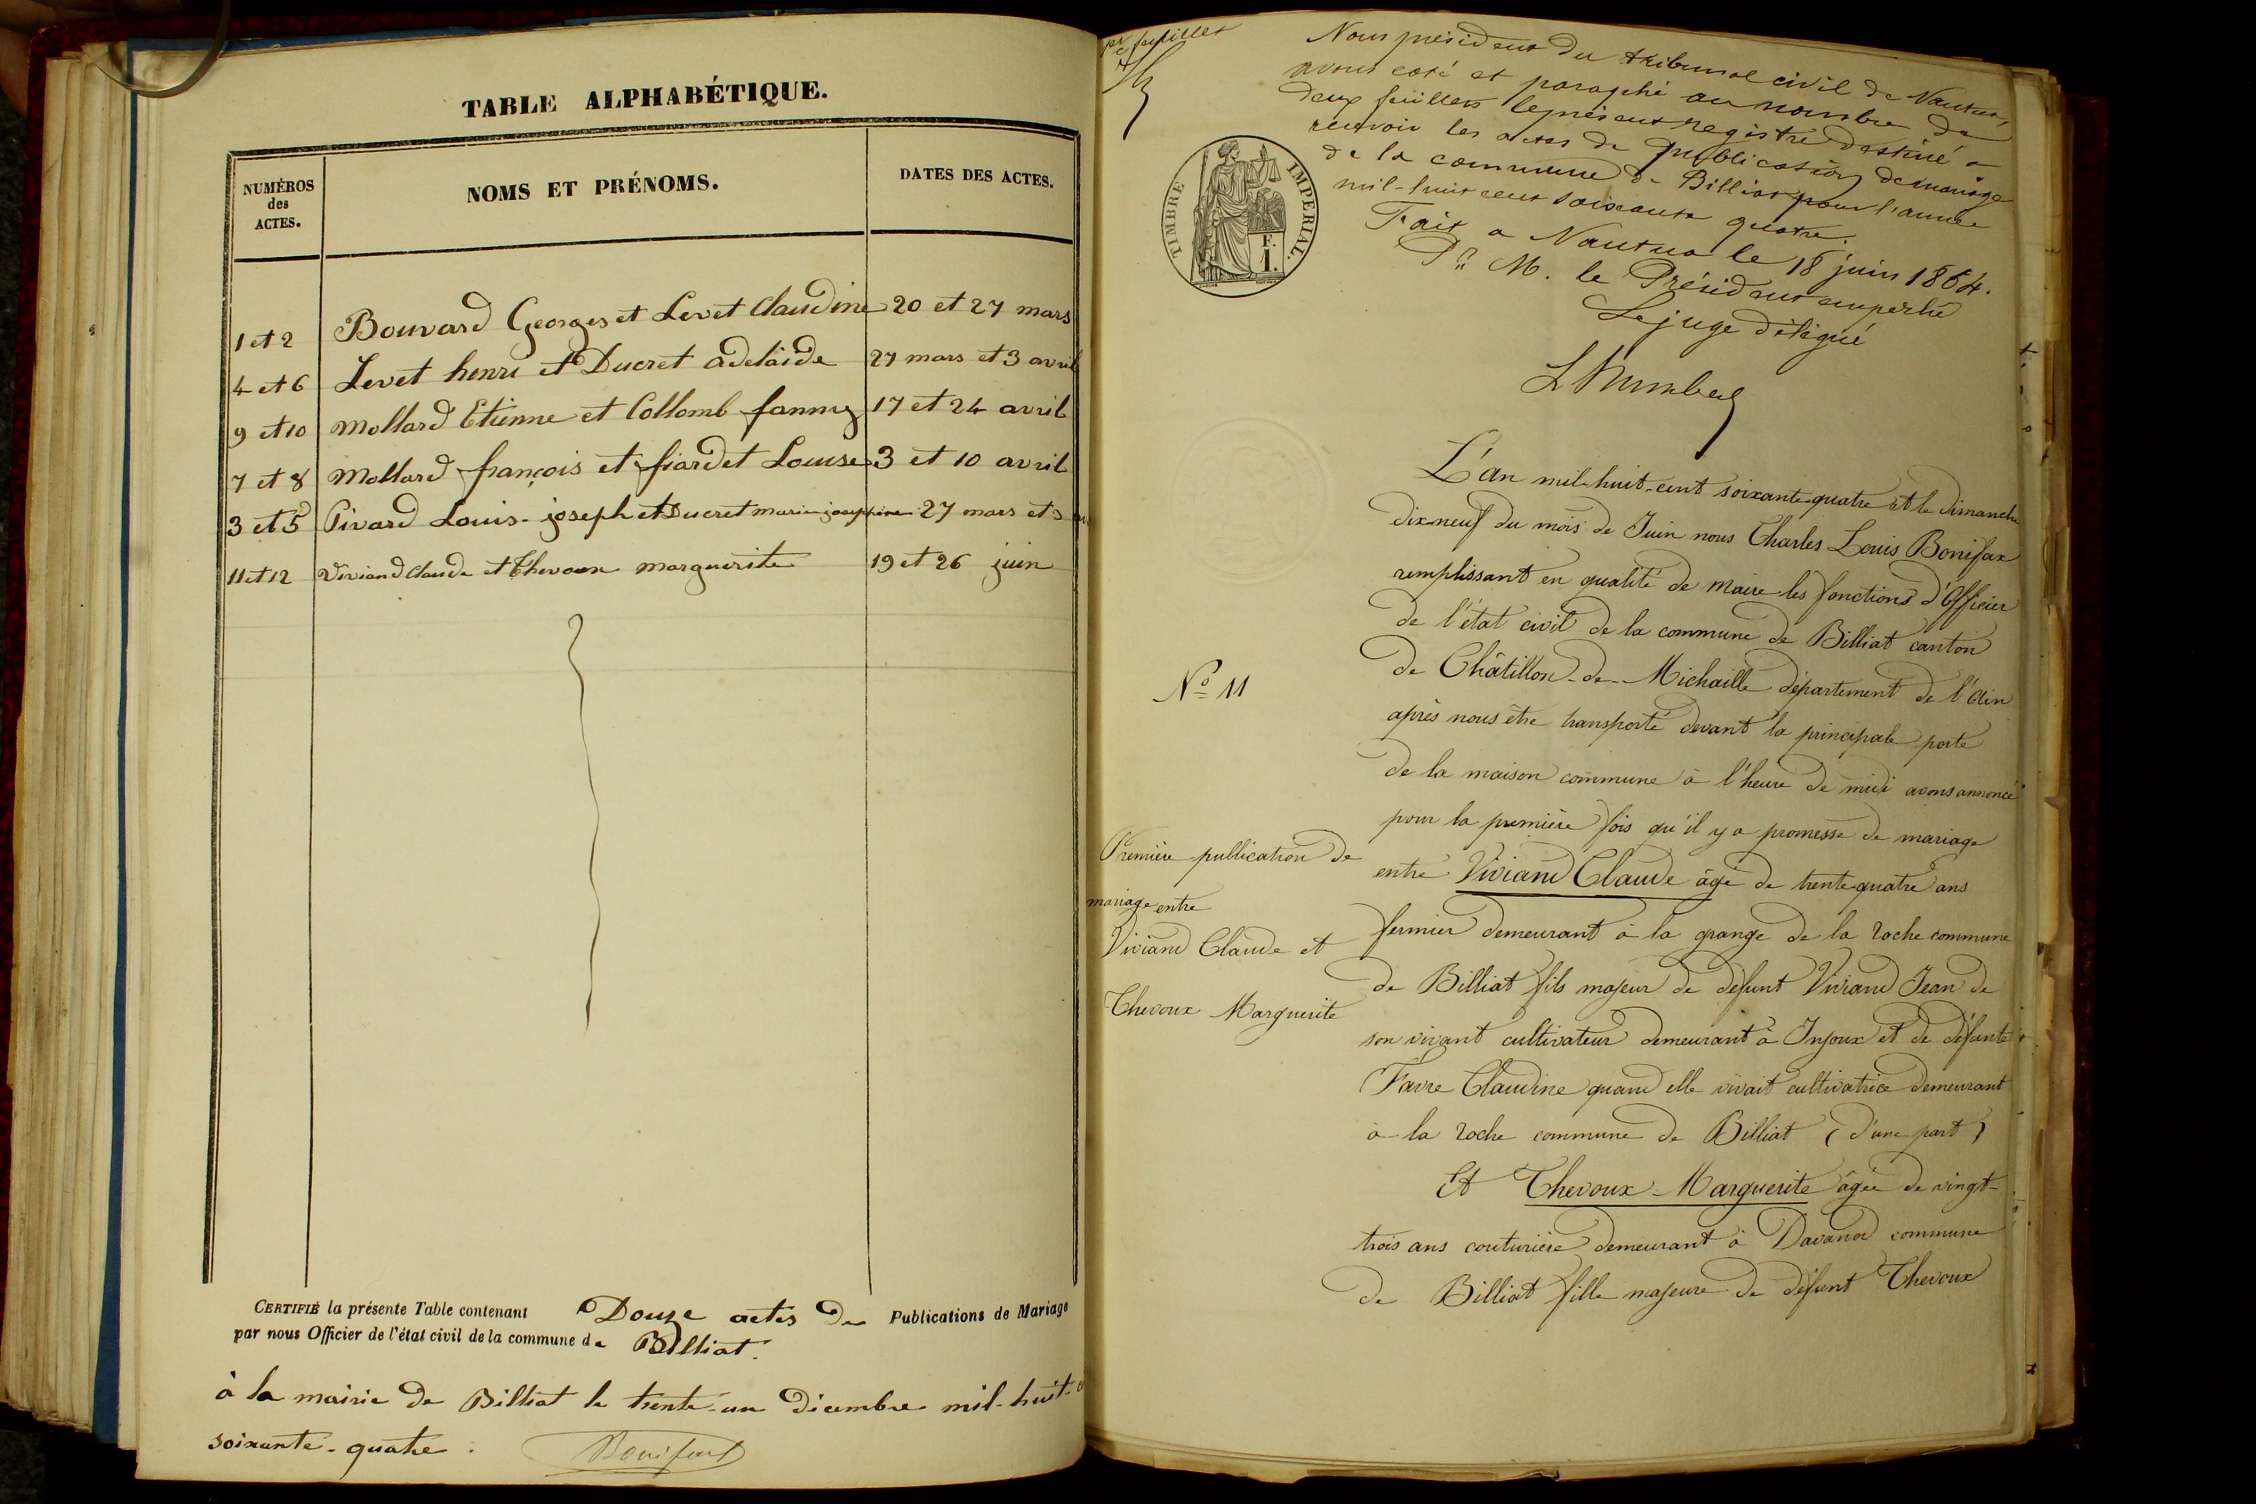 TABLE ALPHABÉTIQUE.
NUMÉROS
des
ACTES.
NOMS ET PRÉNOMS.
DATES DES ACTES.
1 et 2 Bouvard Georges et Levet Claudine 20 et 27 mars
4 et 6 Levet henri et Ducret adelaïde 27 mars et 3 avril
9 et 10 Mollard Etienne et Collomb fanny 17 et 24 avril
7 et 8 Mollard françois et fiardet Louise 3 et 10 avril
3 et 5 Pivard Louis-joseph et Ducret marie josephine 27 mars et 3 av
11 et 12 Viviand Claude et Thevoux marguerite 19 et 26 juin
CERTIFIÉ la présente Table contenant Douze actes de Publications de Mariage
par nous Officier de l'état civil de la commune de Billiat.
à la mairie de Billiat le trente-un Décembre mil-huit-c
soixante-quatre.
Bonifax
feuillet
Nous président du tribunal civil de Nantua,
avons coté et paraphé au nombre de
deux feuillets le présent registre destiné a
recevoir les actes de publication de mariage
de la commune de Billiat pour l'année
mil-huit cent soixante quatre.
Fait a Nantua le 18 juin 1864.
Pr M. le Président empêché
Le juge délégué
TIMBRE IMPÉRIAL.
F.
1.
L'an mil-huit-cent soixante-quatre et le Dimanche
dix-neuf du mois de Juin nous Charles Louis Bonifax
remplissant en qualité de Maire les fonctions d'Officier
de l'état civil de la commune de Billiat canton
de Châtillon-de-Michaille département de l'Ain
après nous être transporté devant la principale porte
de la maison commune à l'heure de midi avons annoncé
pour la première fois qu'il y a promesse de mariage
entre Viviand Claude âgé de trente-quatre ans
fermier demeurant à la grange de la roche commune
de Billiat fils majeur de défunt Viviand Jean de
son vivant cultivateur demeurant à Injoux et de défunte
Favre Claudine quand elle vivait cultivatrice demeurant
à la roche commune de Billiat (d'une part)
Et Thevoux Marguerite âgée de vingt-
trois ans couturière demeurant à Davanod commune
de Billiat fille majeure de défunt Thevoux
No 11
Première publication de
mariage entre
Viviand Claude et
Thevoux Marguerite